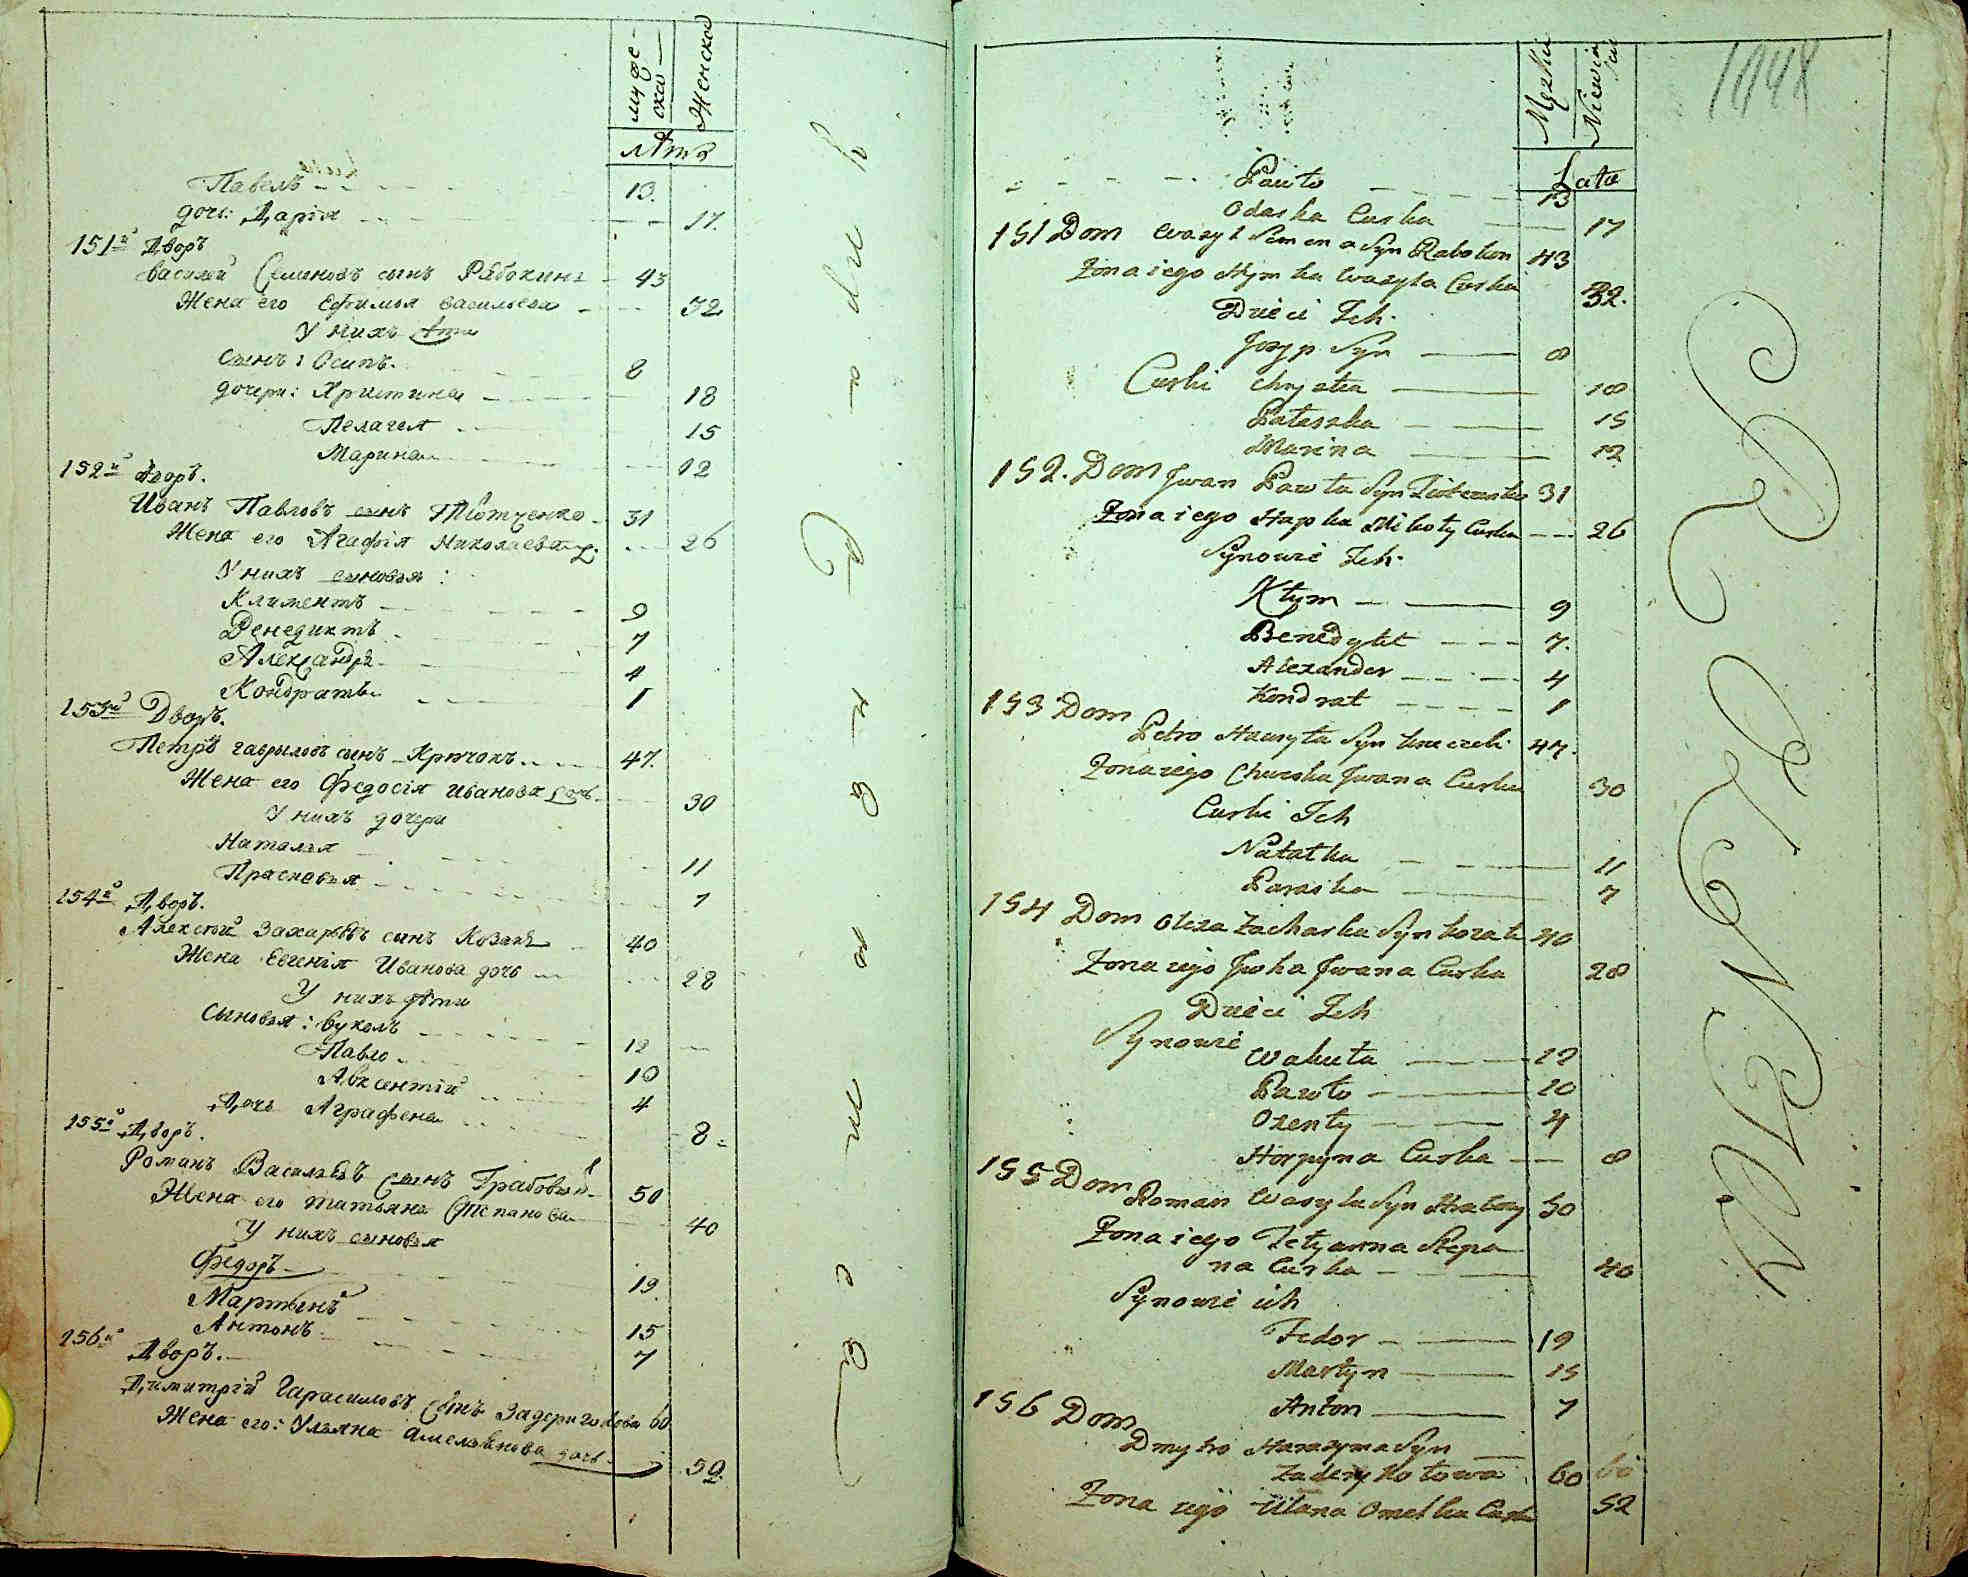 муже-
ска
Женска
лѣта
Павелъ 13.
дочь: Дарія 17.
151й Дворъ
Василей Семеновъ сынъ Рабокинь 43
Жена его Ефимья Васильева 32
У нихъ дѣти
Сынъ: Осипъ. 8
дочери: Христина 18
Пелагея 15
Марина 12
152й Дворъ.
Иванъ Павловъ сынъ 31
Жена его Агафія Николаева 26
У нихъ сыновья:
Климентъ 9
Венедиктъ 7
Александръ 4
Кондратъ 1
153й Дворъ.
Петръ Гаврыловъ сынъ Крючокъ 47.
Жена его Федосія Иванова дочь 30
У нихъ дочери
Наталья 11
Прасковья 7
154й Дворъ.
Алексѣй Захарьевъ сынъ Козакъ 40
Жена Евгенія Иванова дочь 28
У нихъ дѣти
Сыновья: Вуколъ 12
Павло 10
Авксентій 4
Дочь Аграфена 8
155й Дворъ.
Романъ Васильевъ сынъ Грабовый 50
Жена его Татьяна Степанова 40
У нихъ сыновья
Федоръ 19
Мартынъ 15
Антонъ 7
156й Дворъ.
Димитрій Гарасимовъ сынъ Задериголова 60
Жена его: Ульяна Амельянова дочь 52.
1048
Męzkie
Lata
Pawło 13
Odarka Curka 17
151 Dom Wasyl Semena Syn Rabokon 43
Żona iego Hymka Wasyla Curka 32.
Dzieci Ich.
Jozyp Syn 8
Curki Chrystia 18
Palaszka 15
Marina 12
152. Dom Jwan Pawła Syn 31
Żona iego Hapka Mikoły Curka 26
Synowie Ich.
Kłym 9
Benedykt 7.
Alexander 4
Kondrat 1
153 Dom
Petro Hawryła Syn Kruczek 47.
Żona iego Chweska Jwana Curka 30
Curki Ich
Natałka 11
Paraska 7
154 Dom Olexa Zacharka Syn Kozak 40
Żona iego Jwha Jwana Curka 28
Dzieci Ich
Synowie
Wakuła 12
Pawło 10
Oxenty 4
Horpyna Curka 8
155 Dom
Roman Wasyla Syn Hrabowy 50
Żona iego Tetyanna Stepa
na Curka 40
Synowie ich
Fedor 19
Martyn 15
Anton 7
156 Dom
Dmytro Harasyma Syn
Zaderykołowa 60 60
Żona iego Ulana Omelka Curka 52